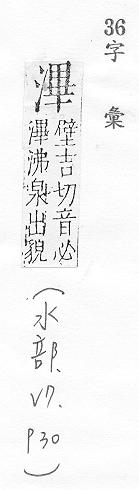 36字彙
滭
壁吉切音必
滭沸泉出貌
(水部、V7、P30)